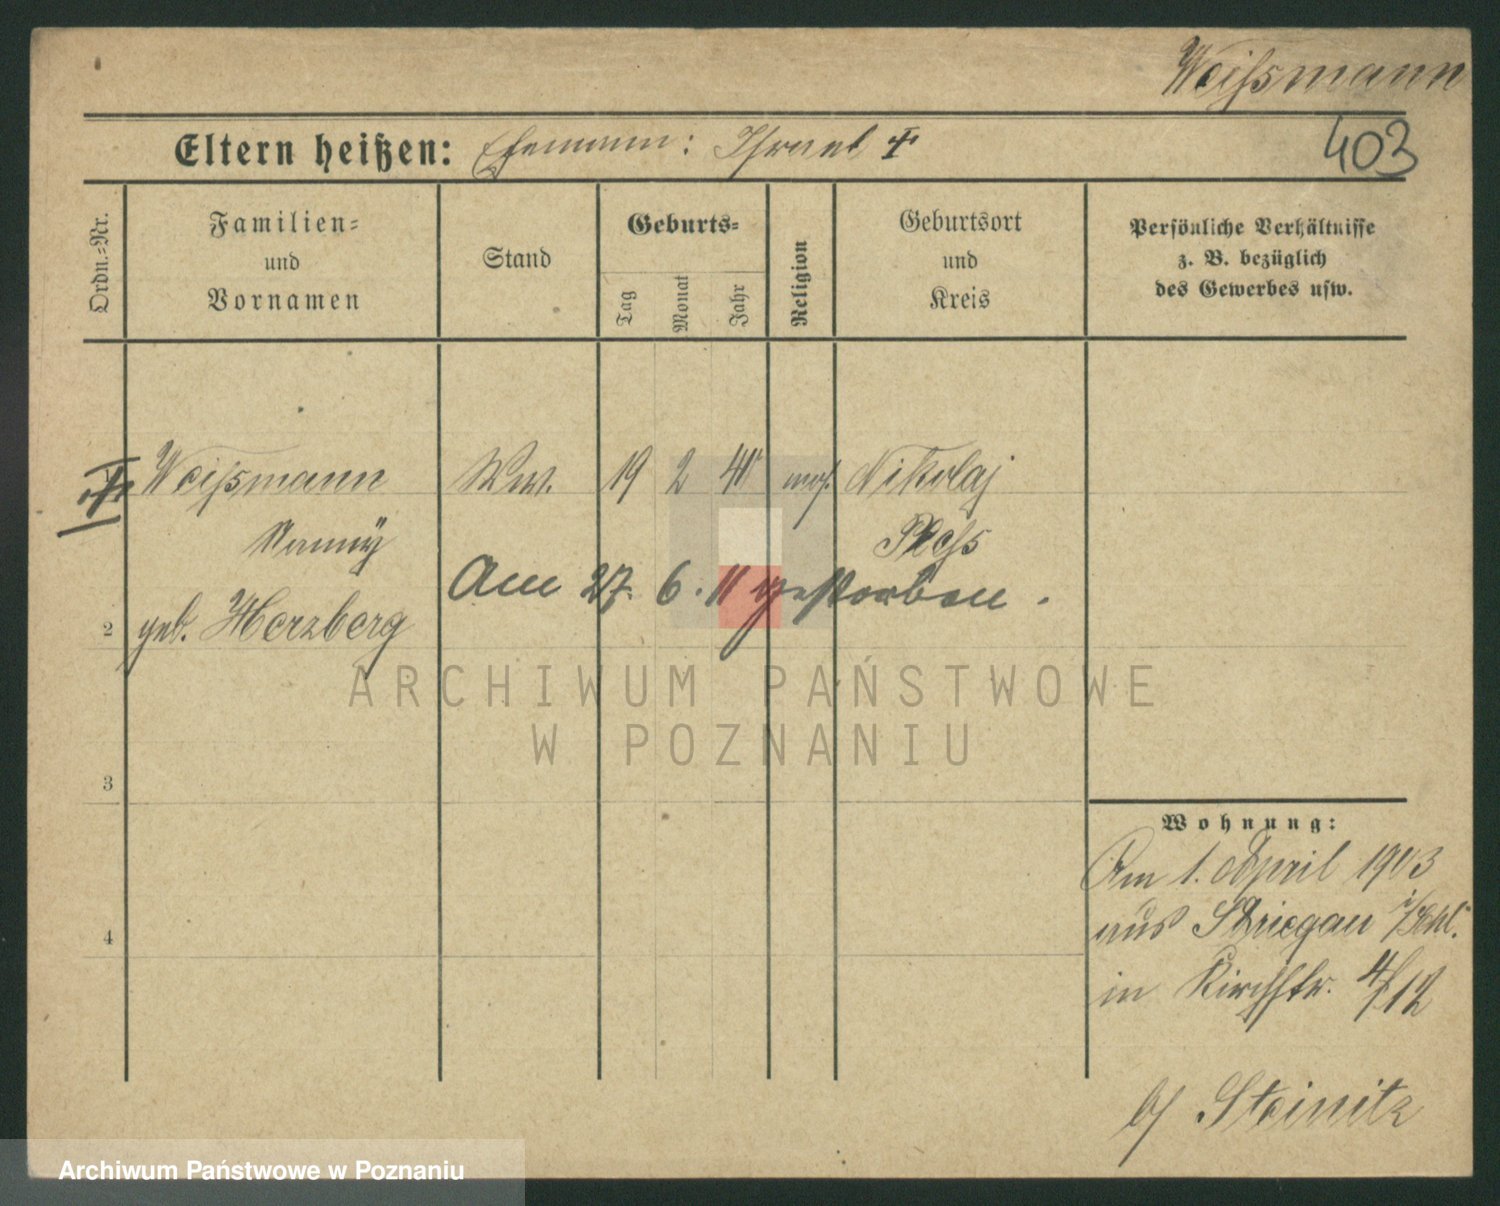 Weißmann
403
Eltern heißen: Ehemann: Israel †
Ordn.-Nr.
Familien-
und
Vornamen
Stand
Geburts-
Tag
Monat
Jahr
Religion
Geburtsort
und
Kreis
Persönliche Verhältnisse
z. B. bezüglich
des Gewerbes usw.
Weißmann Ww. 19 2 41 mos. Nikolaj
Nanny Pleß
Am 27. 6. 11 gestorben.
2 geb. Herzberg
3
4
ARCHIWUM PAŃSTWOWE
W POZNANIU
Wohnung:
Am 1. April 1903
aus Striegau i/Schl.
in Kirchstr. 4/12
b/ Steinitz
Archiwum Państwowe w Poznaniu